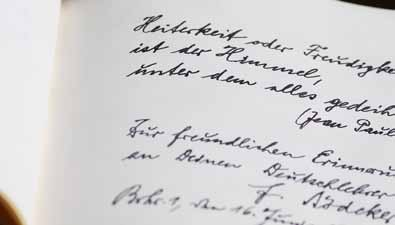 Heiterkeit oder Freudigke
ist der Himmel,
unter dem alles gedeih
(Jean Paul
Zur freundlichen Erinnerun
an Deinen Deutschlehrer
F.
den 16. Juni